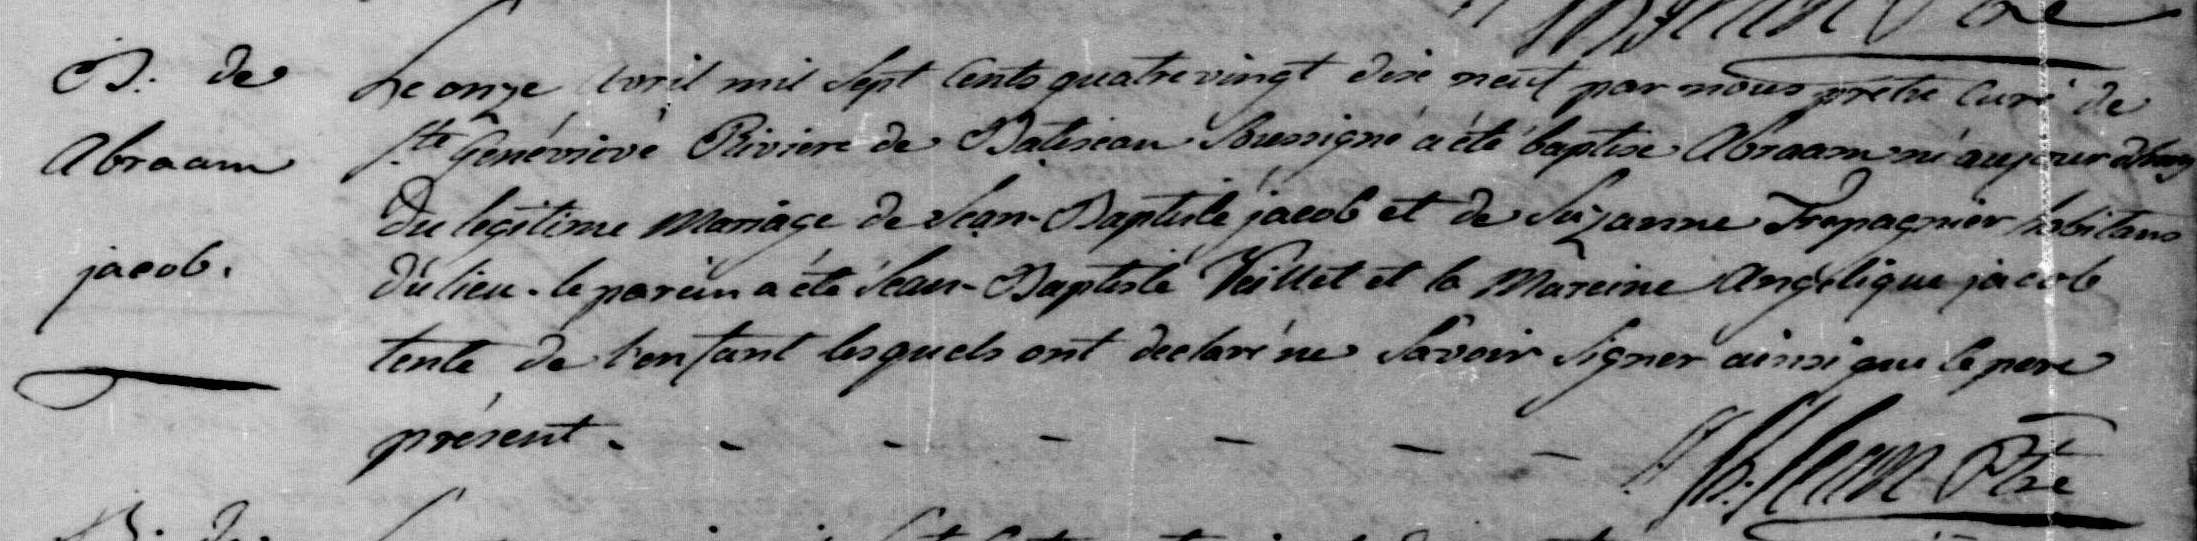 B. de
Abraam
jacob.
Le onze Avril mil Sept Cents quatre vingt dixe neuf par nous prêtre Curé de
Ste Généviève Riviere de Batiscan Soussigné a été baptisé Abraam né aujour dhuy
Du légitime Mariage de Jean-Baptiste jacob et de Suzanne Trepagnier habitans
du lieu. le parein a été Jean-Baptiste Veillet et la Mareine Angélique jacob
tente de l'enfant lesquels ont declaré ne Savoir Signer ainsi que le pere
présent. - - - - - -
Ptre